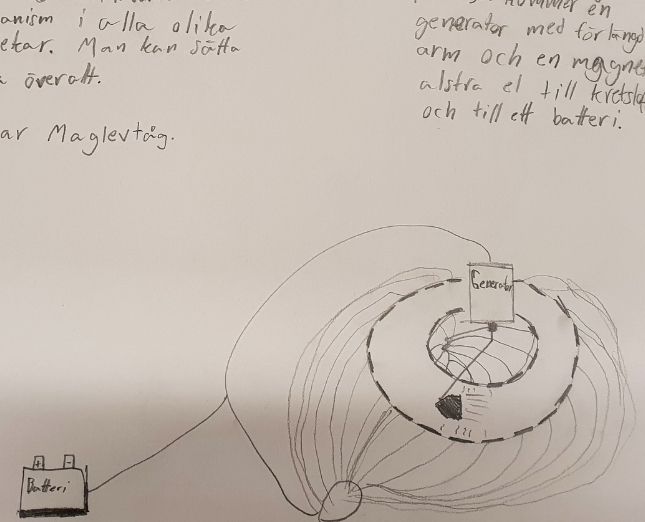 anism i alla olika
etar. Man kan sätta
a överallt.
ar Maglevtåg.
en
generator med förlängd
arm och en magnet
alstra el till kretslo
och till ett batteri.
Generator
+ -
Batteri